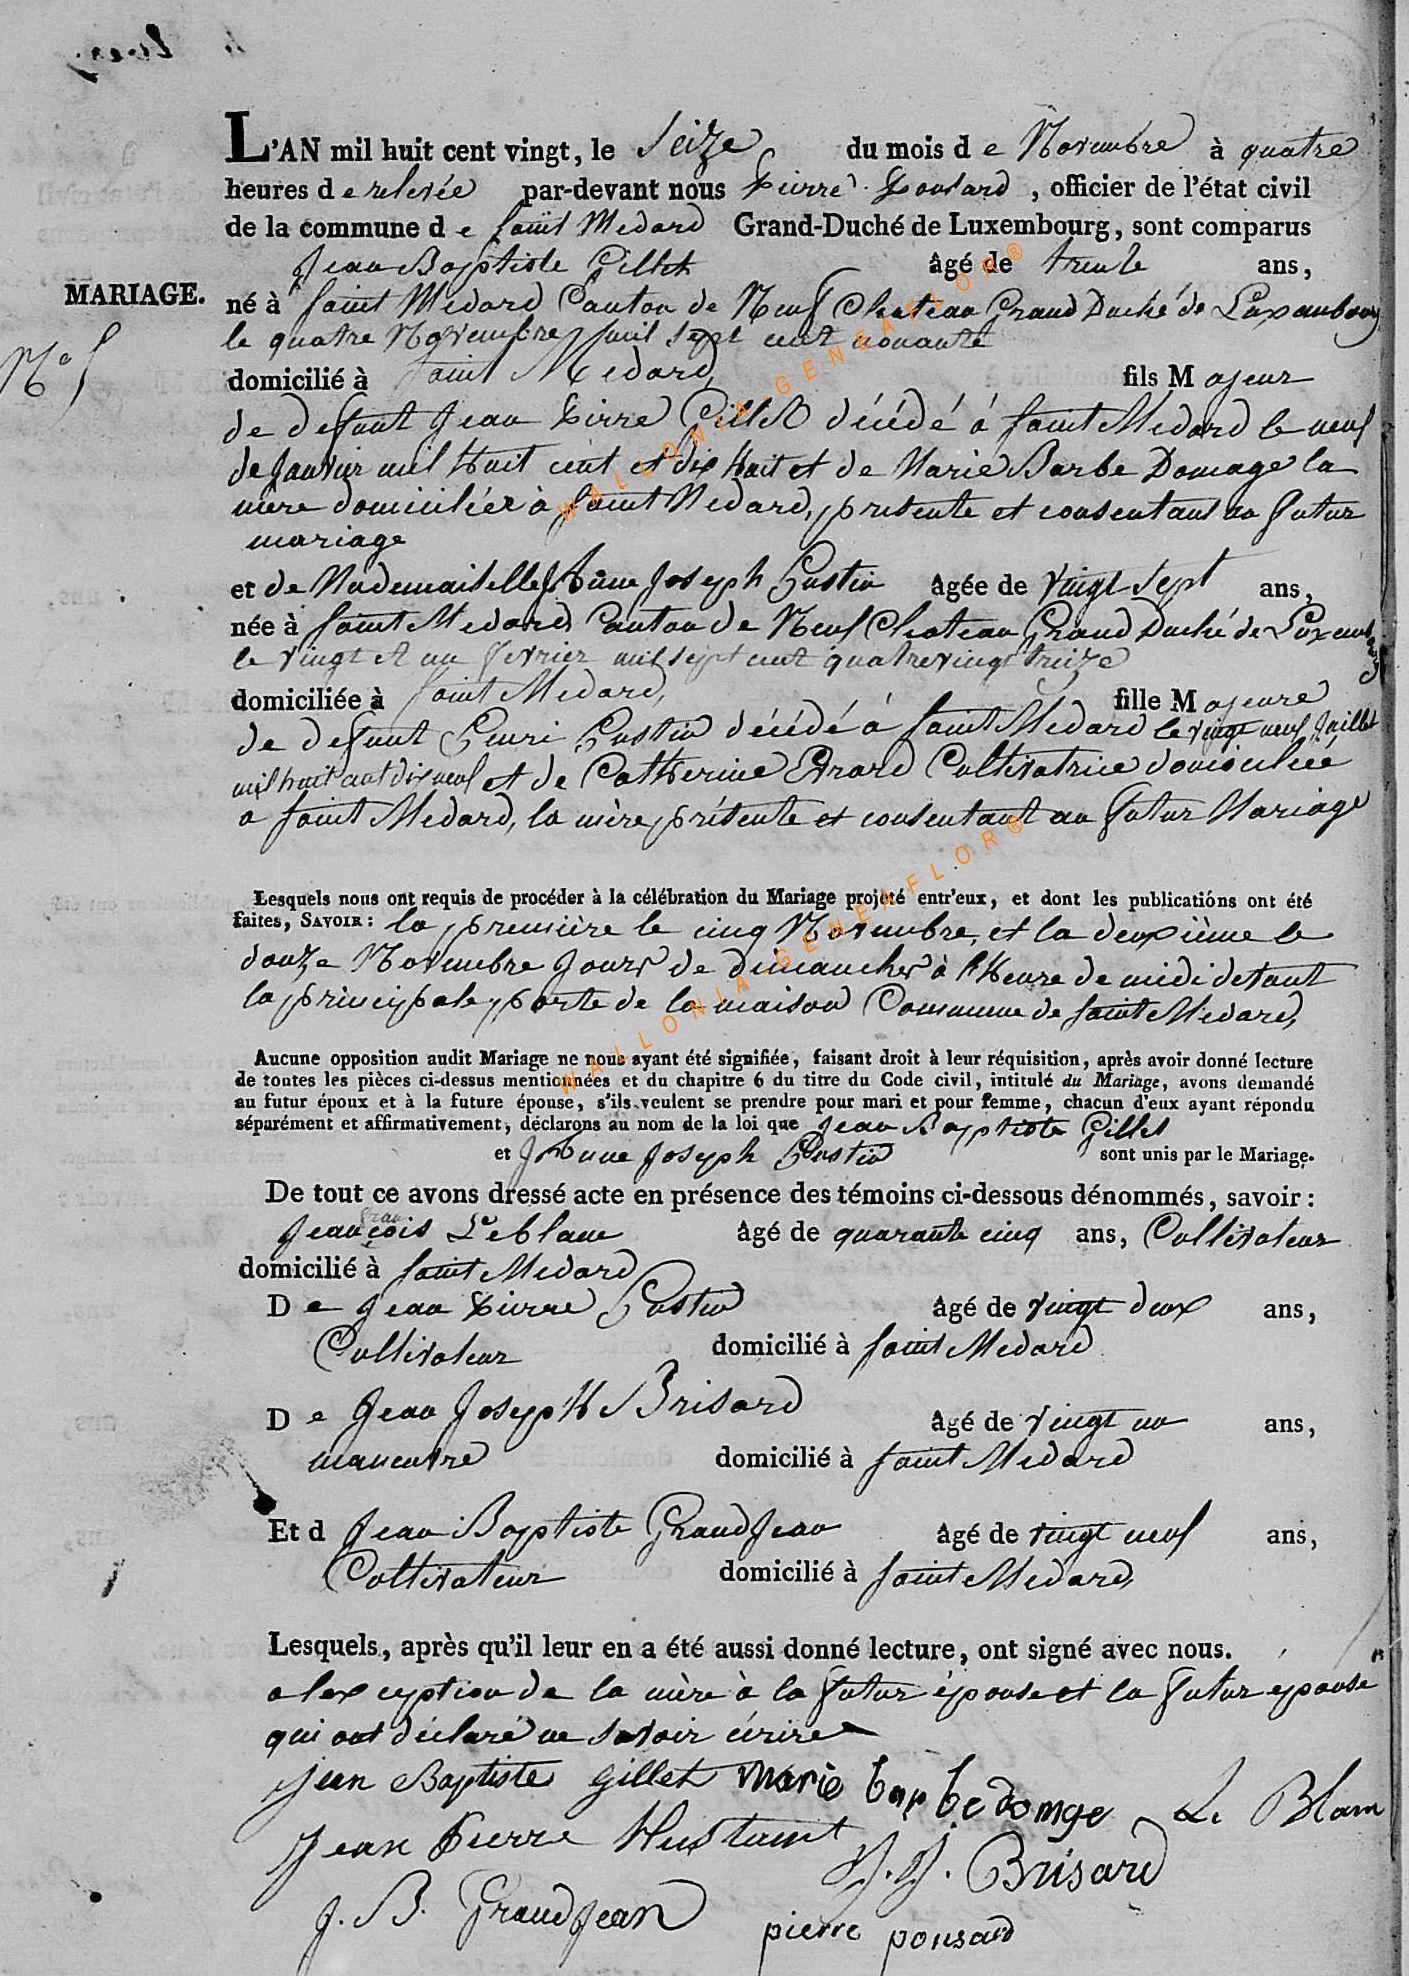 L'AN mil huit cent vingt, le Seize du mois de Novembre à quatre
heures de relevée par-devant nous Pierre Ponsard, officier de l'état civil
de la commune de Saint Medard Grand-Duché de Luxembourg, sont comparus
Jean Baptiste Gillet âgé de trente ans,
MARIAGE.
né à Saint Medard Canton de Neuf Chateau Grand Duché de Luxembourg
le quatre Novembre mil sept cent nonante
N° 5
domicilié à Saint Medard, fils Majeur
de defunt Jean Pierre Gillet décédé à Saint Medard le neuf
de Janvier mil Huit cent et dix Huit et de Marie Barbe Domage la
mère domiciliée à Saint Medard, presente et consentant au futur
mariage
et de Mademaiselle Anne Joseph Gustin âgée de vingt sept ans,
née à Saint Medard Canton de Neuf Chateau Grand Duché de Luxembourg
le vingt et un fevrier mil sept cent quatrevingt treize
domiciliée à Saint Medard, fille Majeure
de defunt Henri Gustin décédé à Saint Medard le vingt neuf Juillet
mil huit cent dix neuf et de Catherine Evrard Cultivatrice domiciliée
a Saint Medard, la mère présente et consentant au futur Mariage
Lesquels nous ont requis de procéder à la célébration du Mariage projeté entr'eux, et dont les publications ont été
faites, SAVOIR: la première le cinq Novembre, et la deuxième le
douze Novembre Jours de dimanches à l'Heure de midi devant
la principale porte de la maison Commune de Saint Medard,
Aucune opposition audit Mariage ne nous ayant été signifiée, faisant droit à leur réquisition, après avoir donné lecture
de toutes les pièces ci-dessus mentionnées et du chapitre 6 du titre du Code civil, intitulé du Mariage, avons demandé
au futur époux et à la future épouse, s'ils veulent se prendre pour mari et pour femme, chacun d'eux ayant répondu
séparément et affirmativement, déclarons au nom de la loi que Jean Baptiste Gillet
et Anne Joseph Gustin sont unis par le Mariage.
De tout ce avons dressé acte en présence des témoins ci-dessous dénommés, savoir:
François Leblanc âgé de quarante cinq ans, Cultivateur
domicilié à Saint Medard
De Jean Pierre Gustin âgé de vingt deux ans,
Cultivateur domicilié à Saint Medard
De Jean Joseph Brisard âgé de vingt un ans,
manouvre domicilié à Saint Medard
Et d Jean Baptiste GrandJean âgé de vingt neuf ans,
Cultivateur domicilié à Saint Medard,
Lesquels, après qu'il leur en a été aussi donné lecture, ont signé avec nous.
a lexception de la mère à la futur épouse et la futur épouse
qui ont déclaré ne savoir écrire
jean Baptiste gillet marie barbe domge Le Blanc
Jean Pierre J. J. Brisard
J. B. Grandjean pierre ponsard
WALLONIA-GENEAFLOR®
WALLONIA-GENEAFLOR®